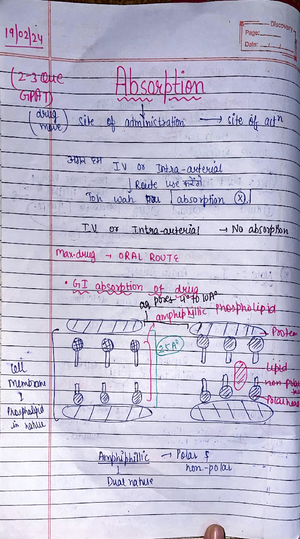 19/02/24
Discovery
Page:
Date:
(2-3 Que
GPAT)
Absorption
(drug
move) site of administration → site of actn
अगर हम I.V or Intra-arterial
↓ Route use करेंगे
Toh wah absorption (X)
I.V or Intra-arterial → No absorption
Max-drug → ORAL ROUTE
• GI absorption of drug
aq pores 4° to 10A°
amphiphillic phospholipid
Protein
25A°
Cell
Membrane
Phospholipid
in nature
Lipid
non-polar
Polar head
Amphiphillic → Polar &
non-polar
Dual nature